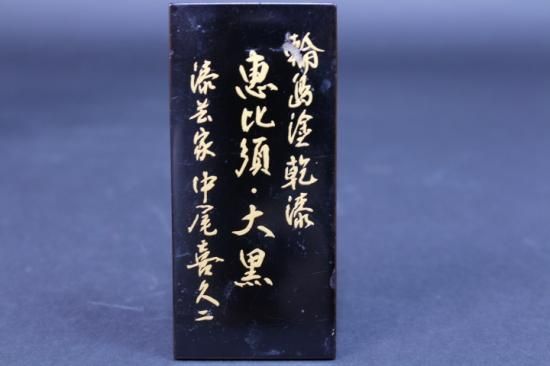 輪島塗乾漆
恵比須・大黒
漆芸家 中尾喜久二